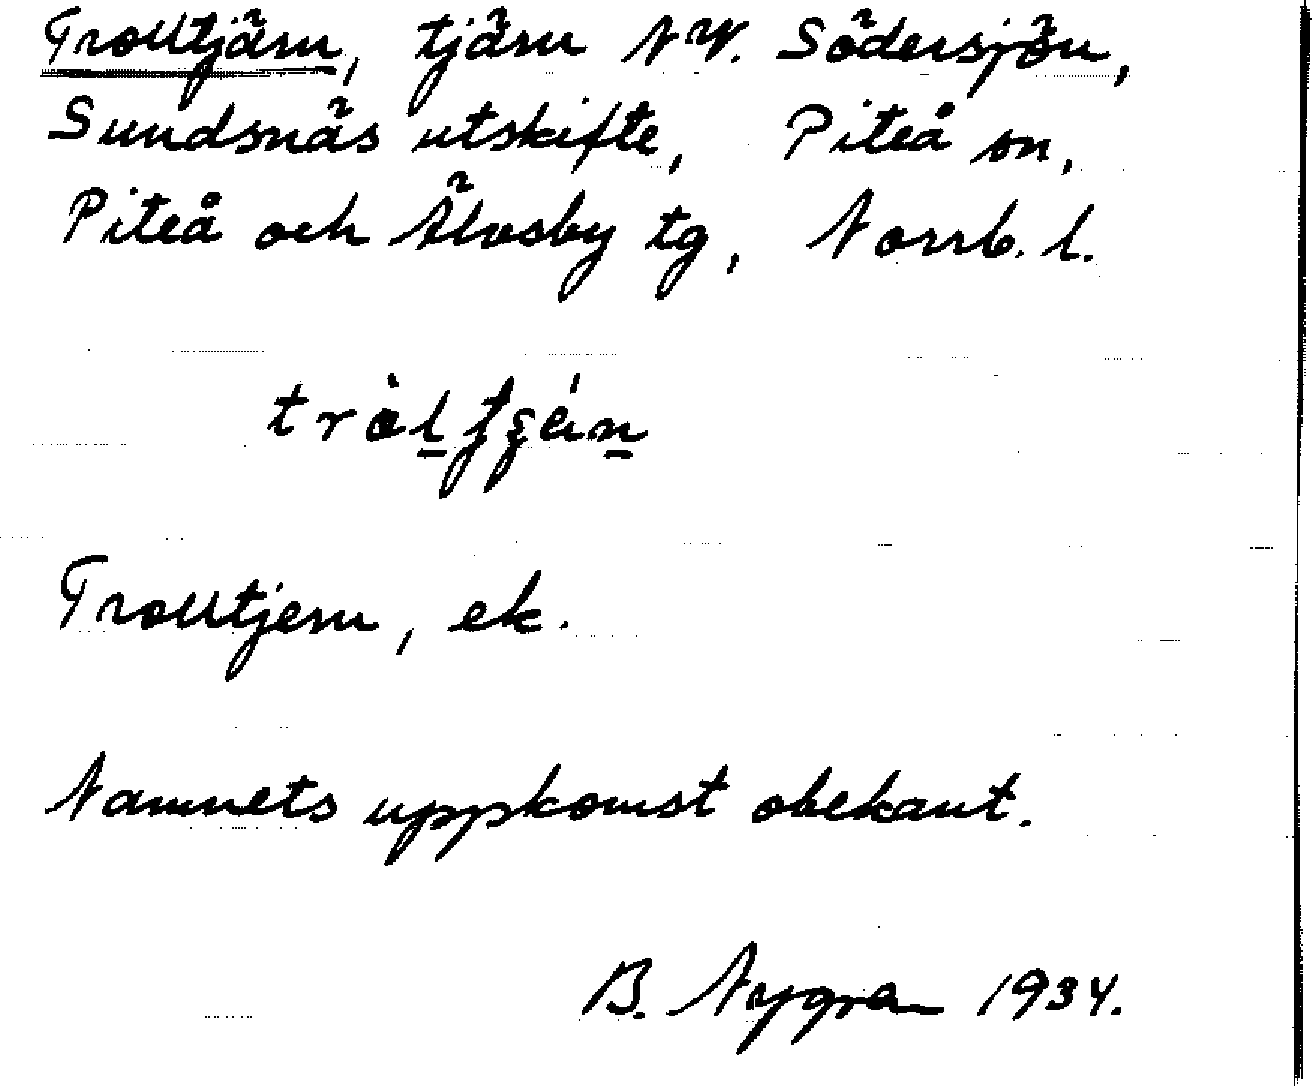 Trolltjärn, tjärn NW. Södersjön,
Sundsnäs utskifte, Piteå sn,
Piteå och Älvsby tg, Norrb. l.
Trolltjern, ek.
Namnets uppkomst obekant.
B. Nygren 1934.